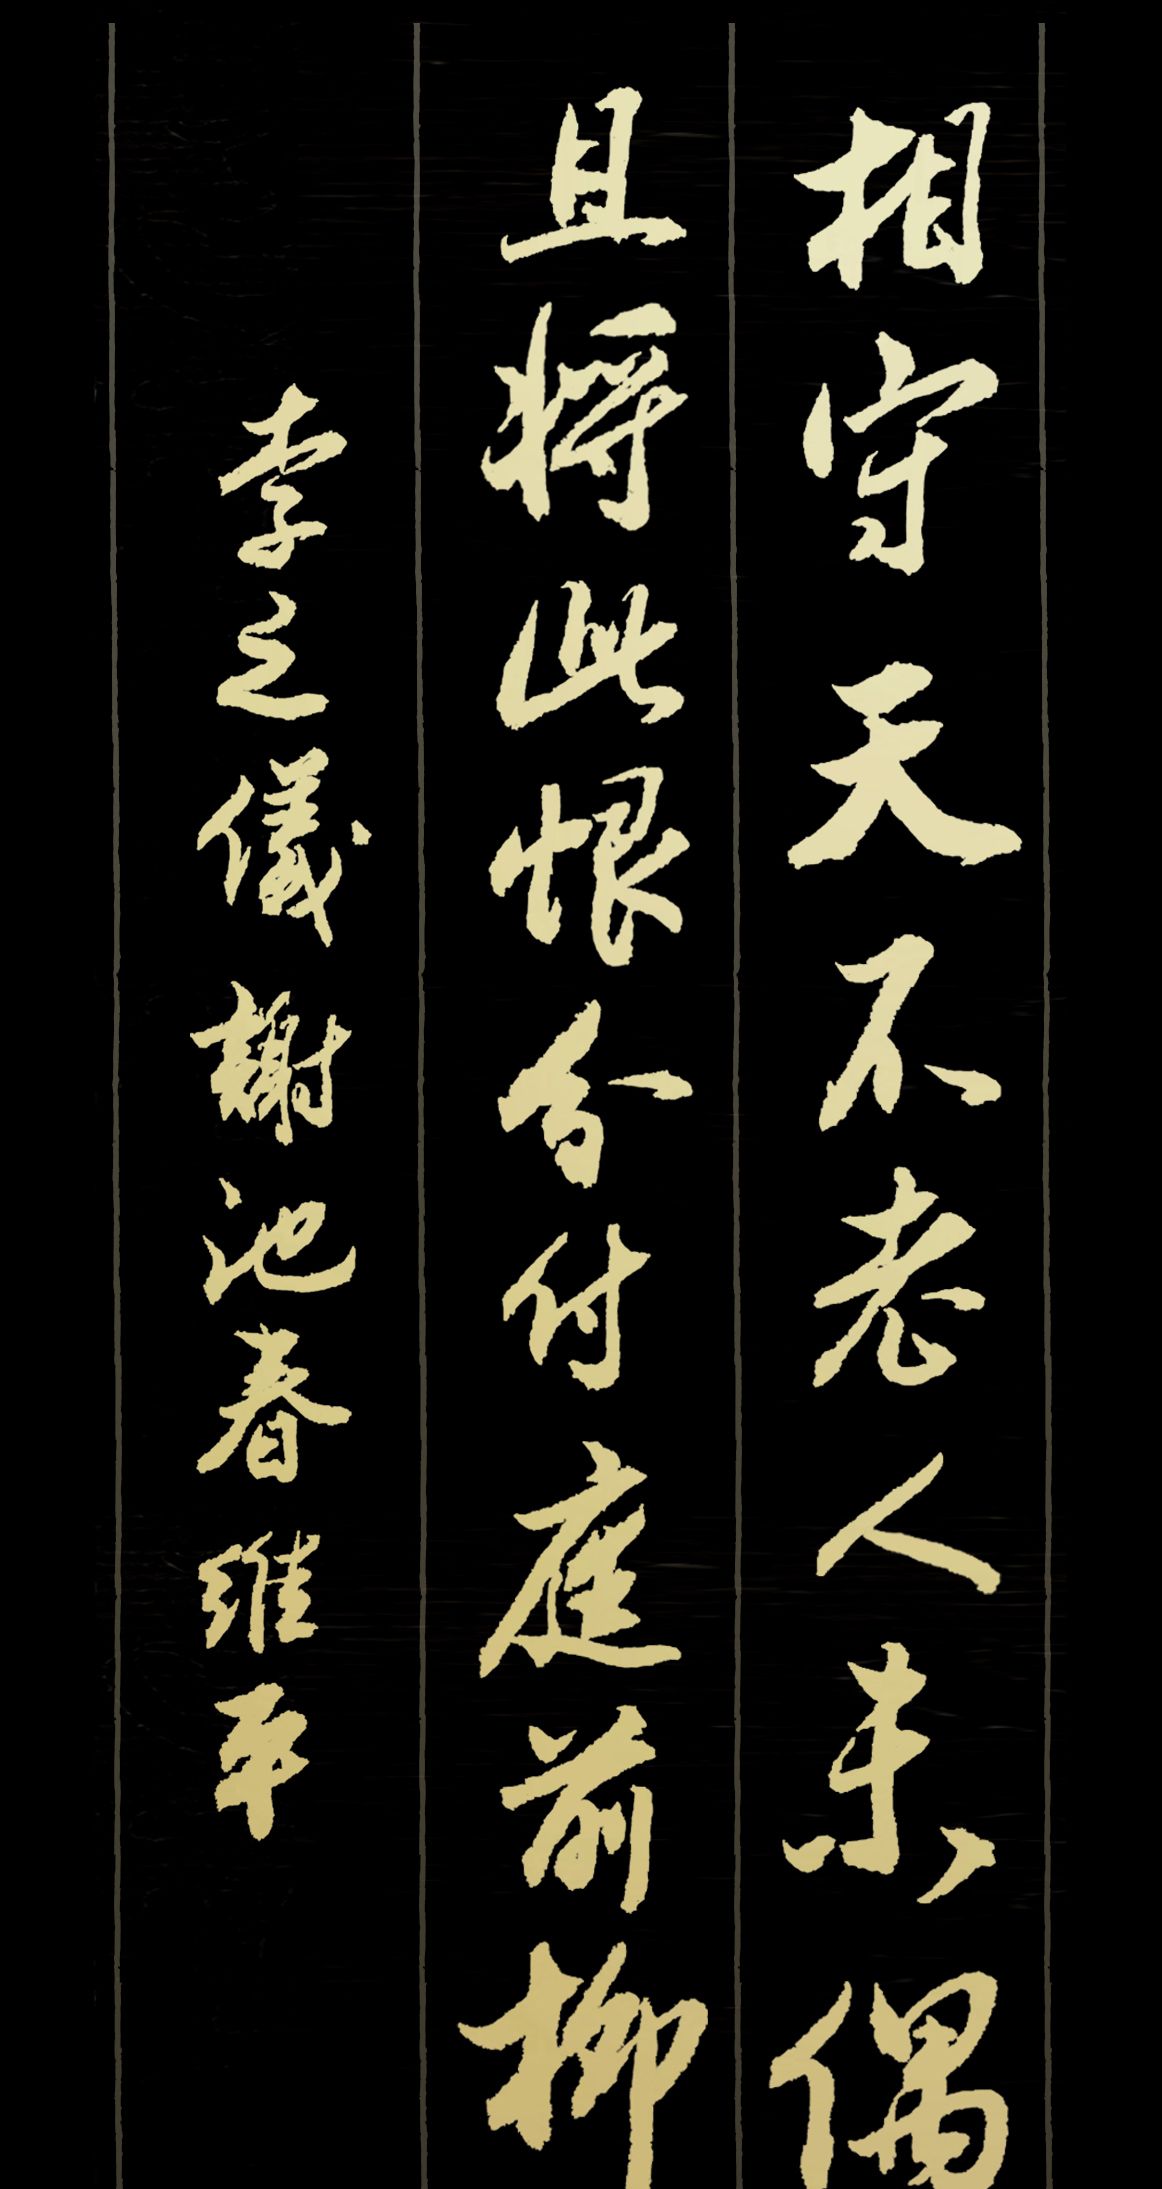 相守天不老人未偶
且将此恨分付庭前柳
李之儀謝池春維平